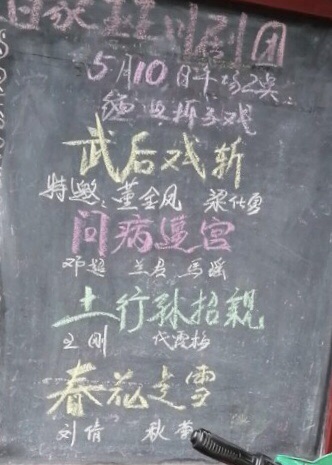 班川剧团
5月10日午场2点:
折子戏
武后戏斩
特邀:董金凤 梁仕勇
问病逼宫
邓超 兰 马瑶
土行孙招親
王刚 代霞梅
春花走雪
刘倩 秋